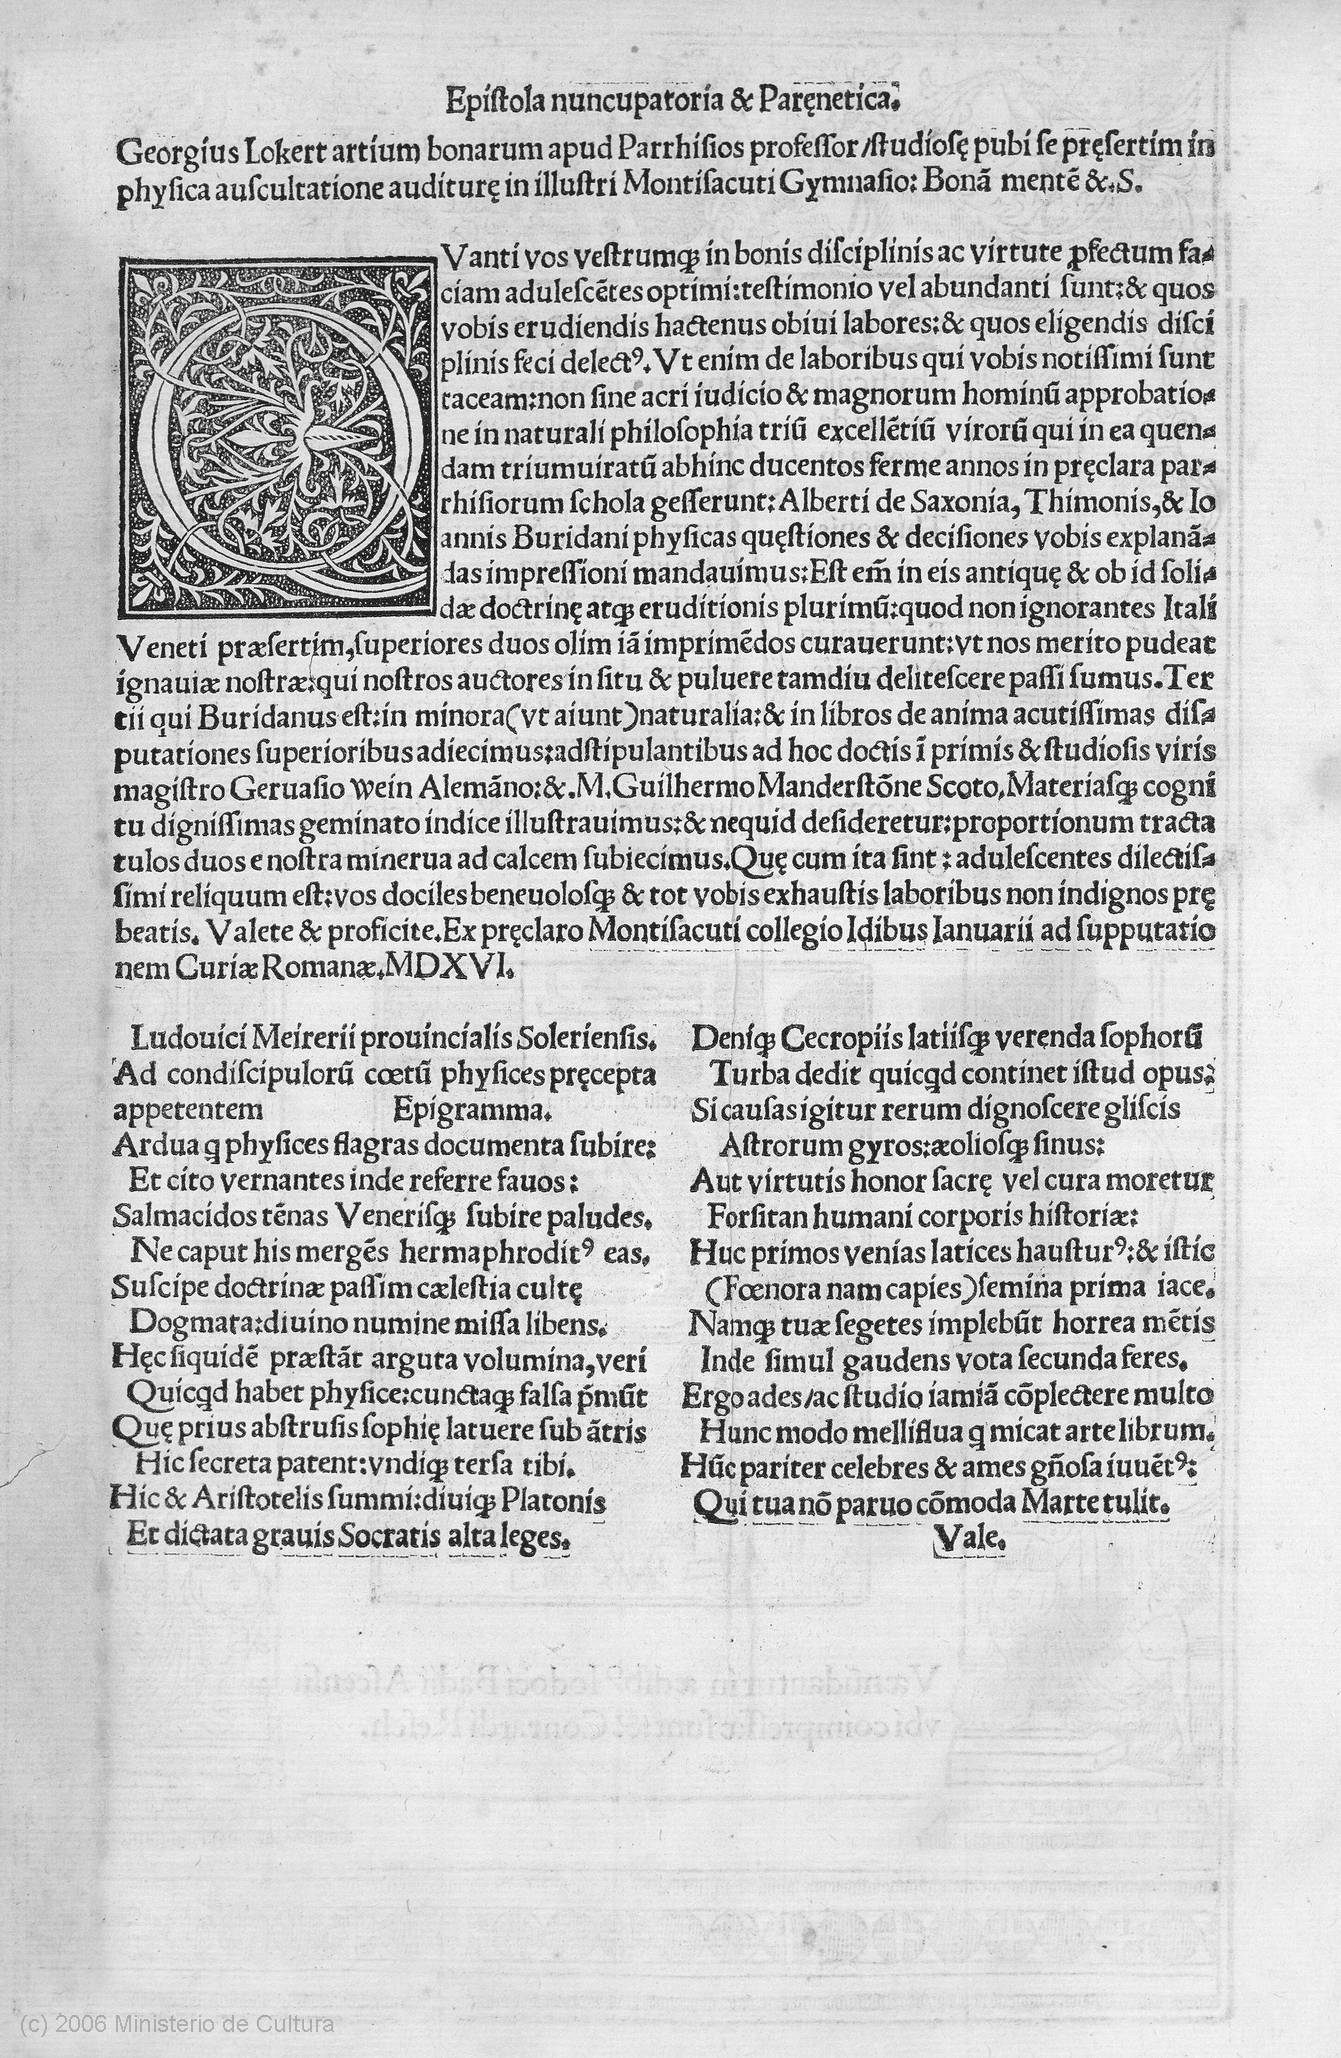 Epistola nuncupatoria & Paręnetica.
Georgius Lokert artium bonarum apud Parrhisios professor/studiosę pubi se pręsertim in
physica auscultatione auditurę in illustri Montisacuti Gymnasio: Bonã mentẽ &.S.
QVanti vos vestrumq; in bonis disciplinis ac virtute ꝓfectum fa-
ciam adulescẽtes optimi: testimonio vel abundanti sunt: & quos
vobis erudiendis hactenus obiui labores: & quos eligendis disci
plinis feci delectꝰ. Vt enim de laboribus qui vobis notissimi sunt
taceam: non sine acri iudicio & magnorum hominũ approbatio-
ne in naturali philosophia triũ excellẽtiũ virorũ qui in ea quen-
dam triumuiratũ abhinc ducentos ferme annos in pręclara par-
rhisiorum schola gesserunt: Alberti de Saxonia, Thimonis, & Io
annis Buridani physicas quęstiones & decisiones vobis explanã-
das impressioni mandauimus: Est em̃ in eis antiquę & ob id soli-
dæ doctrinę atq; eruditionis plurimũ: quod non ignorantes Itali
Veneti præsertim, superiores duos olim iã imprimẽdos curauerunt: vt nos merito pudeat
ignauiæ nostræ: qui nostros auctores in situ & puluere tamdiu delitescere passi sumus. Ter
tii qui Buridanus est: in minora (vt aiunt) naturalia: & in libros de anima acutissimas dis-
putationes superioribus adiecimus: adstipulantibus ad hoc doctis ĩ primis & studiosis viris
magistro Geruasio wein Alemãno: &. M. Guilhermo Manderstõne Scoto. Materiasq; cogni
tu dignissimas geminato indice illustrauimus: & nequid desideretur: proportionum tracta
tulos duos e nostra minerua ad calcem subiecimus. Quę cum ita sint: adulescentes dilectis-
simi reliquum est: vos dociles beneuolosq; & tot vobis exhaustis laboribus non indignos prę
beatis. Valete & proficite. Ex pręclaro Montisacuti collegio Idibus Ianuarii ad supputatio
nem Curiæ Romanæ. MDXVI.
Ludouici Meirerii prouincialis Soleriensis.
Ad condiscipulorũ cœtũ physices pręcepta
appetentem Epigramma.
Ardua ꝗ physices flagras documenta subire:
Et cito vernantes inde referre fauos:
Salmacidos tẽnas Venerisq; subire paludes.
Ne caput his mergẽs hermaphroditꝰ eas.
Suscipe doctrinæ passim cælestia cultę
Dogmata: diuino numine missa libens.
Hęc siquidẽ præstãt arguta volumina, veri
Quicꝗd habet physice: cunctaq; falsa p̃mũt
Quę prius abstrusis sophię latuere sub ãtris
Hic secreta patent: vndiq; tersa tibi.
Hic & Aristotelis summi: diuiq; Platonis
Et dictata grauis Socratis alta leges.
Deniq; Cecropiis latiisq; verenda sophorũ
Turba dedit quicꝗd continet istud opus:
Si causas igitur rerum dignoscere gliscis
Astrorum gyros: æoliosq; sinus:
Aut virtutis honor sacrę vel cura moretur
Forsitan humani corporis historiæ:
Huc primos venias latices hausturꝰ: & istic
(Fœnora nam capies) semina prima iace.
Namq; tuæ segetes implebũt horrea mẽtis
Inde simul gaudens vota secunda feres.
Ergo ades/ac studio iamiã cõplectere multo
Hunc modo melliflua ꝗ micat arte librum.
Hũc pariter celebres & ames gñosa iuuẽtꝰ:
Qui tua nõ paruo cõmoda Marte tulit.
Vale.
(c) 2006 Ministerio de Cultura